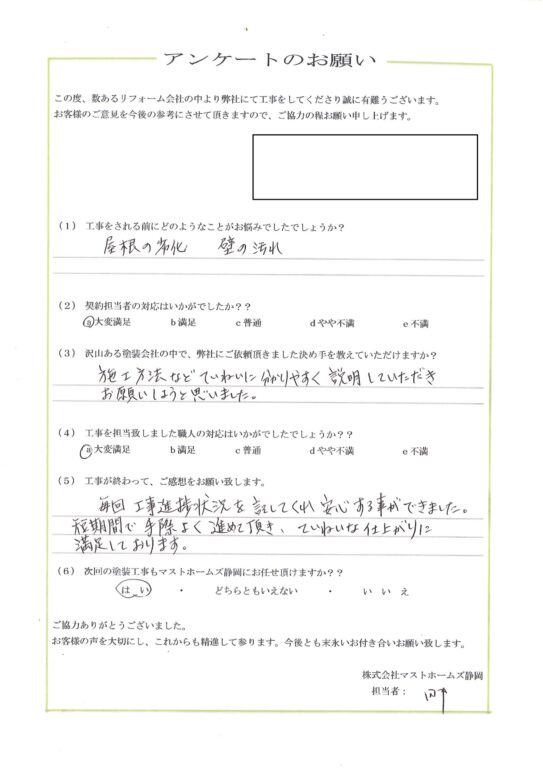 アンケートのお願い
この度、数あるリフォーム会社の中より弊社にて工事をしてくださり誠に有難うございます。
お客様のご意見を今後の参考にさせて頂きますので、ご協力の程お願い申し上げます。
(1) 工事をされる前にどのようなことがお悩みでしたでしょうか?
屋根の劣化 壁の汚れ
(2) 契約担当者の対応はいかがでしたか??
a大変満足 b満足 c普通 dやや不満 e不満
(3) 沢山ある塗装会社の中で、弊社にご依頼頂きました決め手を教えていただけますか?
施工方法などていねいに分かりやすく説明していただき
お願いしようと思いました。
(4) 工事を担当致しました職人の対応はいかがでしたでしょうか??
a大変満足 b満足 c普通 dやや不満 e不満
(5) 工事が終わって、ご感想をお願い致します。
毎回工事進捗状況を話してくれ安心する事ができました。
短期間で手際よく進めて頂き、ていねいな仕上がりに
満足しております。
(6) 次回の塗装工事もマストホームズ静岡にお任せ頂けますか??
はい ・ どちらともいえない ・ いいえ
ご協力ありがとうございました。
お客様の声を大切にし、これからも精進して参ります。今後とも末永いお付き合いお願い致します。
株式会社マストホームズ静岡
担当者: